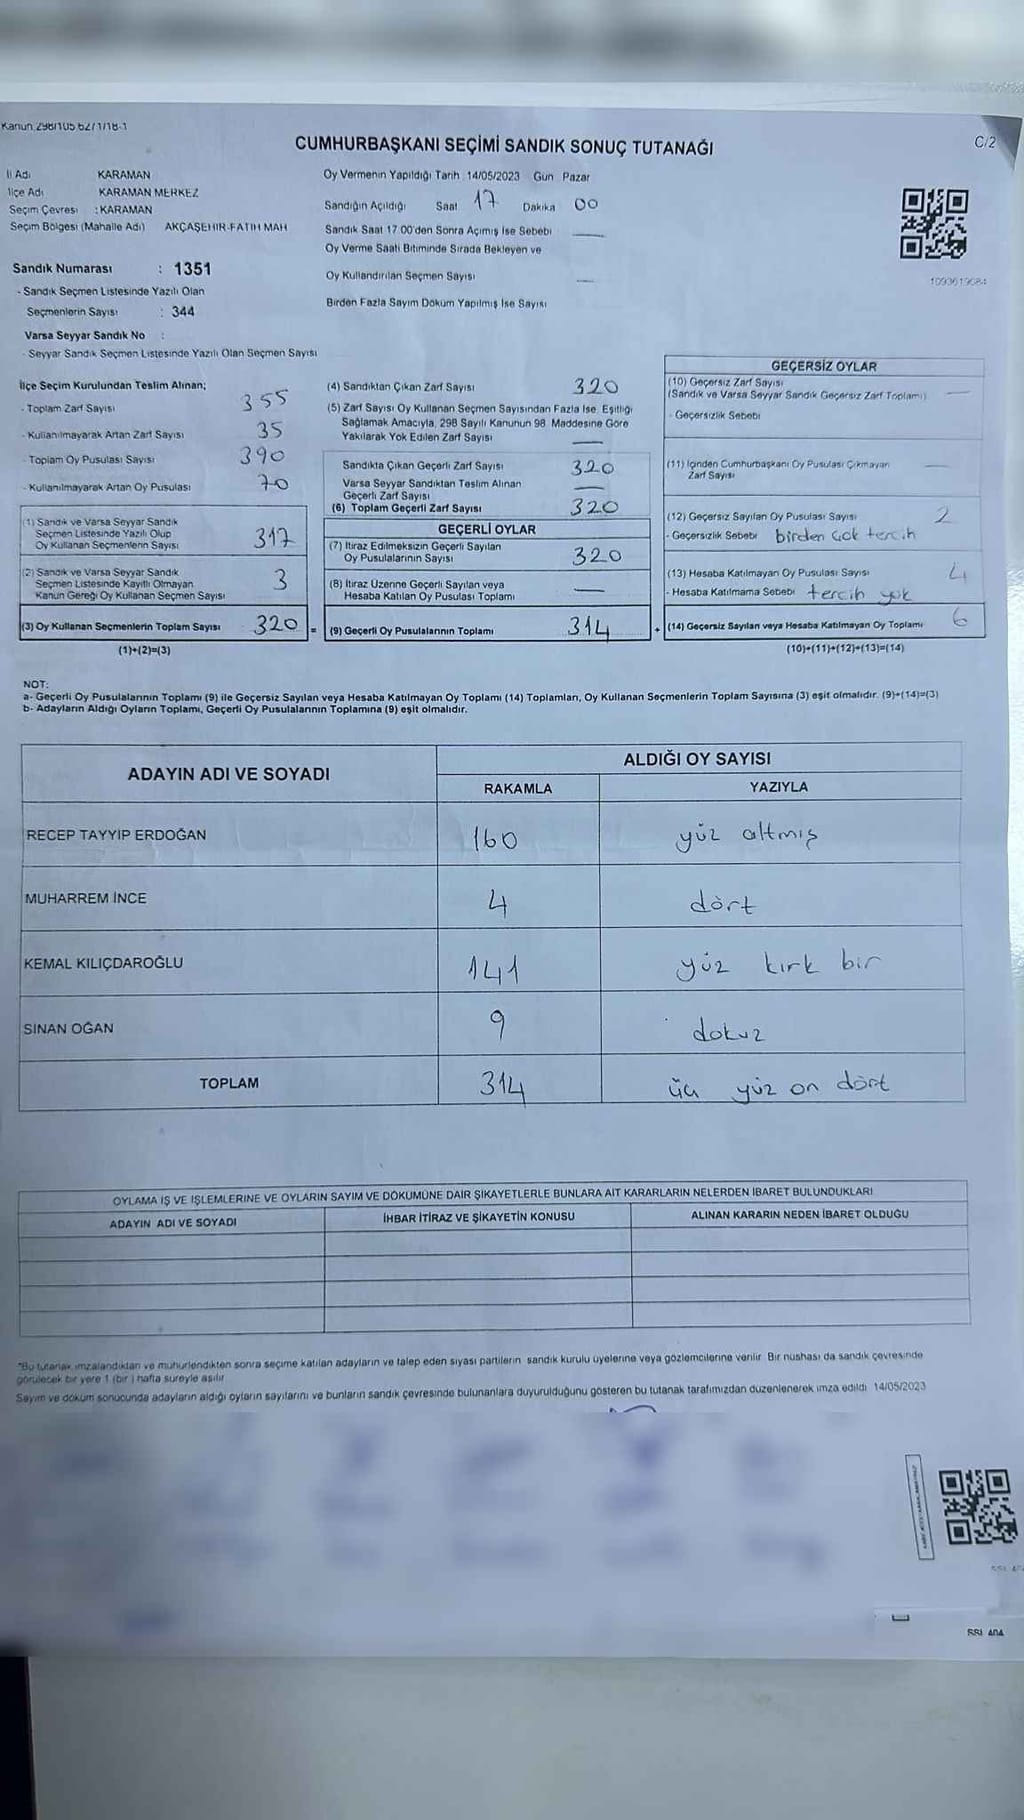 Kanun 298/105 6271/18-1
CUMHURBAŞKANI SEÇİMİ SANDIK SONUÇ TUTANAĞI
C/2
İl Adı KARAMAN
İlçe Adı KARAMAN MERKEZ
Seçim Çevresi : KARAMAN
Seçim Bölgesi (Mahalle Adı) AKÇAŞEHİR-FATİH MAH
Oy Vermenin Yapıldığı Tarih 14/05/2023 Gün Pazar
Sandığın Açıldığı Saat 17 Dakika 00
Sandık Saat 17 00'den Sonra Açılmış İse Sebebi
Oy Verme Saati Bitiminde Sırada Bekleyen ve
Oy Kullandırılan Seçmen Sayısı
Birden Fazla Sayım Döküm Yapılmış İse Sayısı
1093619084
Sandık Numarası : 1351
- Sandık Seçmen Listesinde Yazılı Olan
Seçmenlerin Sayısı : 344
Varsa Seyyar Sandık No :
- Seyyar Sandık Seçmen Listesinde Yazılı Olan Seçmen Sayısı
İlçe Seçim Kurulundan Teslim Alınan;
- Toplam Zarf Sayısı 355
- Kullanılmayarak Artan Zarf Sayısı 35
- Toplam Oy Pusulası Sayısı 390
- Kullanılmayarak Artan Oy Pusulası 70
(1) Sandık ve Varsa Seyyar Sandık
Seçmen Listesinde Yazılı Olup
Oy Kullanan Seçmenlerin Sayısı 317
(2) Sandık ve Varsa Seyyar Sandık
Seçmen Listesinde Kayıtlı Olmayan
Kanun Gereği Oy Kullanan Seçmen Sayısı 3
(3) Oy Kullanan Seçmenlerin Toplam Sayısı 320 =
(1)+(2)=(3)
(4) Sandıktan Çıkan Zarf Sayısı 320
(5) Zarf Sayısı Oy Kullanan Seçmen Sayısından Fazla İse, Eşitliği
Sağlamak Amacıyla, 298 Sayılı Kanunun 98. Maddesine Göre
Yakılarak Yok Edilen Zarf Sayısı
Sandıkta Çıkan Geçerli Zarf Sayısı 320
Varsa Seyyar Sandıktan Teslim Alınan
Geçerli Zarf Sayısı
(6) Toplam Geçerli Zarf Sayısı 320
GEÇERLİ OYLAR
(7) İtiraz Edilmeksizin Geçerli Sayılan
Oy Pusulalarının Sayısı 320
(8) İtiraz Üzerine Geçerli Sayılan veya
Hesaba Katılan Oy Pusulası Toplamı
(9) Geçerli Oy Pusulalarının Toplamı 314 +
GEÇERSİZ OYLAR
(10) Geçersiz Zarf Sayısı
(Sandık ve Varsa Seyyar Sandık Geçersiz Zarf Toplamı)
- Geçersizlik Sebebi
(11) İçinden Cumhurbaşkanı Oy Pusulası Çıkmayan
Zarf Sayısı
(12) Geçersiz Sayılan Oy Pusulası Sayısı 2
- Geçersizlik Sebebi birden çok tercih
(13) Hesaba Katılmayan Oy Pusulası Sayısı 4
- Hesaba Katılmama Sebebi tercih yok
(14) Geçersiz Sayılan veya Hesaba Katılmayan Oy Toplamı 6
(10)+(11)+(12)+(13)=(14)
NOT:
a- Geçerli Oy Pusulalarının Toplamı (9) ile Geçersiz Sayılan veya Hesaba Katılmayan Oy Toplamı (14) Toplamları, Oy Kullanan Seçmenlerin Toplam Sayısına (3) eşit olmalıdır. (9)+(14)=(3)
b- Adayların Aldığı Oyların Toplamı, Geçerli Oy Pusulalarının Toplamına (9) eşit olmalıdır.
ADAYIN ADI VE SOYADI
ALDIĞI OY SAYISI
RAKAMLA YAZIYLA
RECEP TAYYİP ERDOĞAN 160 yüz altmış
MUHARREM İNCE 4 dört
KEMAL KILIÇDAROĞLU 141 yüz kırk bir
SİNAN OĞAN 9 dokuz
TOPLAM 314 üç yüz on dört
OYLAMA İŞ VE İŞLEMLERİNE VE OYLARIN SAYIM VE DÖKÜMÜNE DAİR ŞİKAYETLERLE BUNLARA AİT KARARLARIN NELERDEN İBARET BULUNDUKLARI
ADAYIN ADI VE SOYADI İHBAR İTİRAZ VE ŞİKAYETİN KONUSU ALINAN KARARIN NEDEN İBARET OLDUĞU
*Bu tutanak imzalandıktan ve mühürlendikten sonra seçime katılan adayların ve talep eden siyasi partilerin sandık kurulu üyelerine veya gözlemcilerine verilir. Bir nüshası da sandık çevresinde
görülecek bir yere 1 (bir ) hafta süreyle asılır
Sayım ve döküm sonucunda adayların aldığı oyların sayılarını ve bunların sandık çevresinde bulunanlara duyurulduğunu gösteren bu tutanak tarafımızdan düzenlenerek imza edildi 14/05/2023
SSI 404